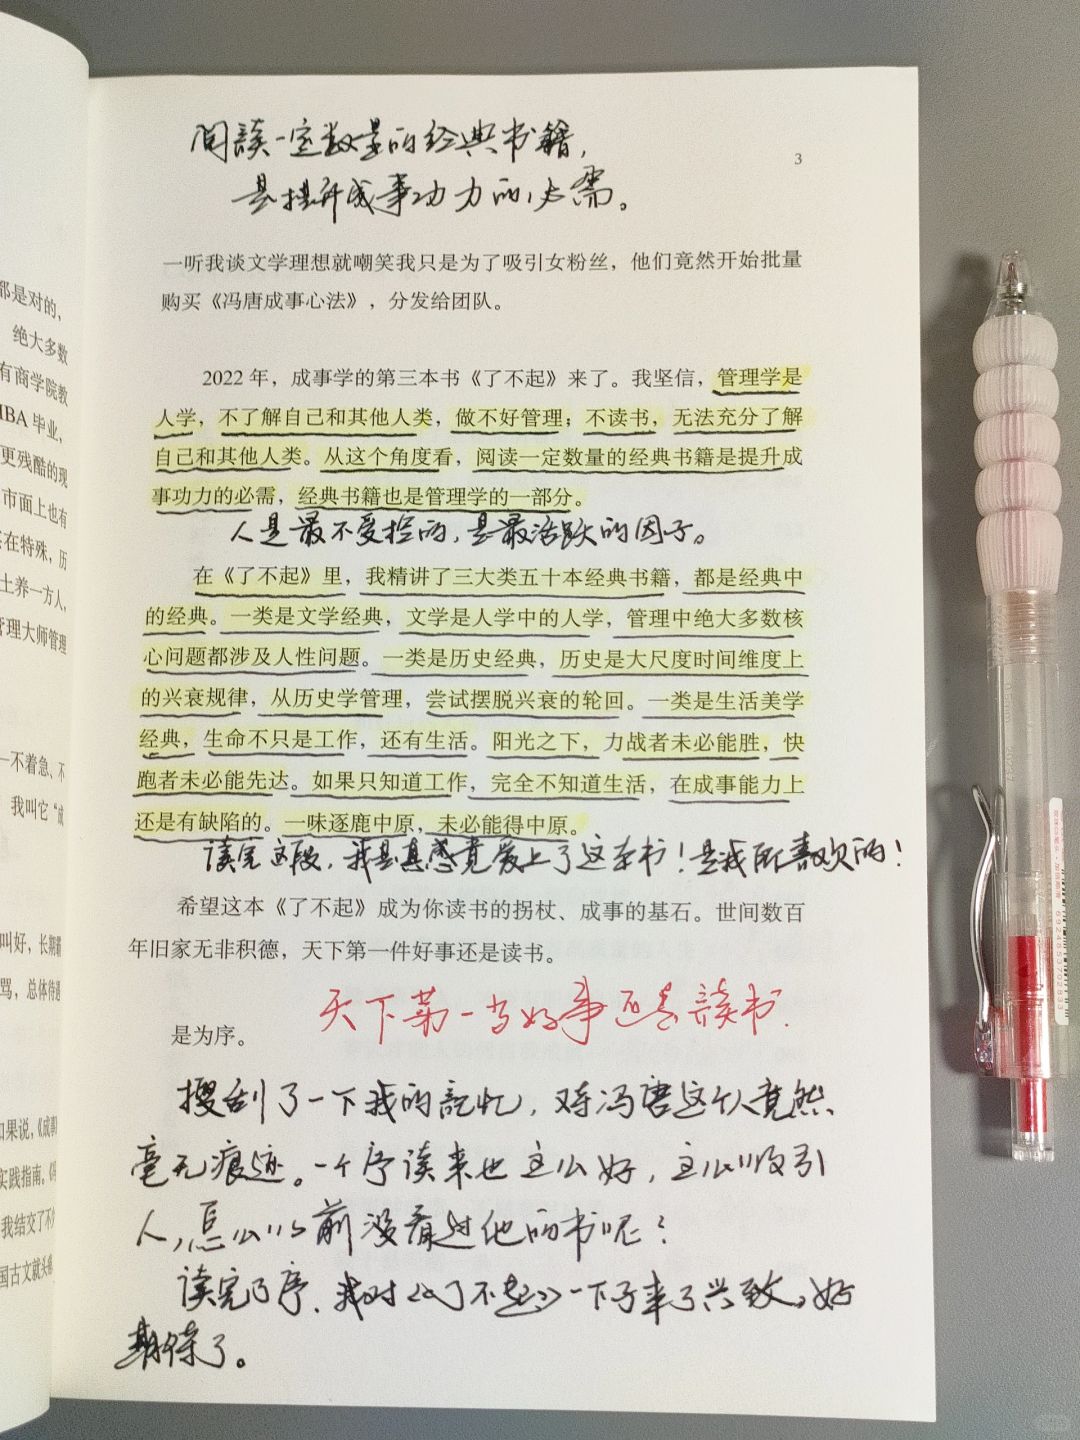 都是对的，
绝大多数
有商学院教
MBA 毕业，
更残酷的现
市面上也有
实在特殊，历
土养一方人，
管理大师管理
不着急、不
我叫它“成
叫好，长期霸
骂，总体待遇
如果说，《成事
实践指南。
我结交了不少
国古文就头疼
阅读一定数量的经典书籍，
是提升成事功力的必需。
3
一听我谈文学理想就嘲笑我只是为了吸引女粉丝，他们竟然开始批量
购买《冯唐成事心法》，分发给团队。
2022 年，成事学的第三本书《了不起》来了。我坚信，管理学是
人学，不了解自己和其他人类，做不好管理；不读书，无法充分了解
自己和其他人类。从这个角度看，阅读一定数量的经典书籍是提升成
事功力的必需，经典书籍也是管理学的一部分。
人是最不受控的，是最活跃的因子。
在《了不起》里，我精讲了三大类五十本经典书籍，都是经典中
的经典。一类是文学经典，文学是人学中的人学，管理中绝大多数核
心问题都涉及人性问题。一类是历史经典，历史是大尺度时间维度上
的兴衰规律，从历史学管理，尝试摆脱兴衰的轮回。一类是生活美学
经典，生命不只是工作，还有生活。阳光之下，力战者未必能胜，快
跑者未必能先达。如果只知道工作，完全不知道生活，在成事能力上
还是有缺陷的。一味逐鹿中原，未必能得中原。
读完这段，我是真感觉爱上了这本书！是我所喜欢的！
希望这本《了不起》成为你读书的拐杖、成事的基石。世间数百
年旧家无非积德，天下第一件好事还是读书。
天下第一等好事还是读书.
是为序。
搜刮了一下我的記忆，对冯唐这个人竟然
毫无痕迹。一个序读来也这么好，这么吸引
人，怎么以前没看过他的书呢？
读完了序，我对《了不起》一下子来了兴致，好
期待了。
6924855702833